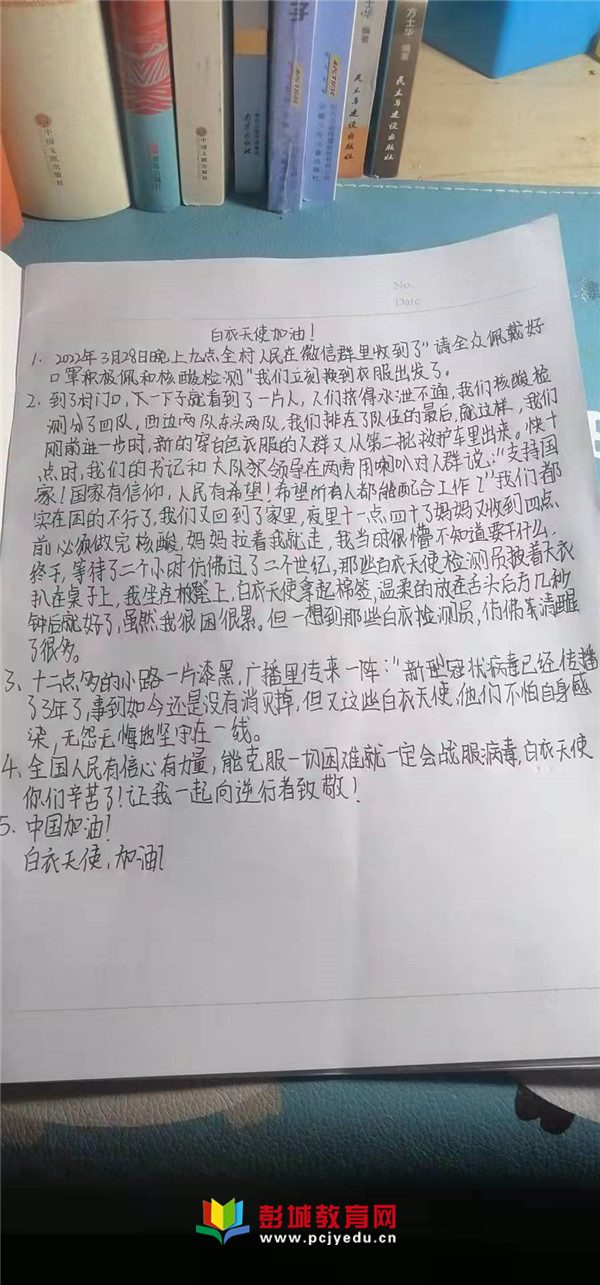 中国文联出版社
青岛出版社
中国文联出版社
方士华 编著
民主与建设出版社
民主与建设出版社
No.
Date
白衣天使加油!
1、2022年3月28日晚上九点全村人民在微信群里收到了"请全众佩戴好
口罩积极佩和核酸检测"我们立刻换到衣服出发了。
2、到了村门口,下一下子就看到了一片人,人们挤得水泄不通,我们核酸检
测分了四队,西边两队东头两队,我们排在了队伍的最后,就这样,我们
刚前进一步时,新的穿白色衣服的人群又从第二批救护车里出来。快十
点时,我们的书记和大队部领导在两旁用喇叭对人群说:"支持国
家!国家有信仰,人民有希望!希望所有人都能配合工作!"我们都
实在困的不行了,我们又回到了家里,夜里十一点四十了妈妈又收到四点
前必须做完核酸,妈妈拉着我就走,我当时很懵不知道要干什么.
终于,等待了二个小时仿佛过了二个世纪,那些白衣天使检测员披着大衣
趴在桌子上,我坐在板凳上,白衣天使拿起棉签,温柔的放在舌头后方几秒
钟后就好了,虽然我很困很累。但一想到那些白衣检测员,仿佛清醒
了很多。
3、十二点多的小路一片漆黑,广播里传来一阵:"新型冠状病毒已经传播
了3年了,事到如今还是没有消灭掉,但又这些白衣天使,他们不怕自身感
染,无怨无悔地坚守在一线。
4、全国人民有信心有力量,能克服一切困难就一定会战服病毒,白衣天使
你们辛苦了!让我一起向逆行者致敬!
5、中国加油!
白衣天使,加油!
彭城教育网
www.pcjyedu.cn